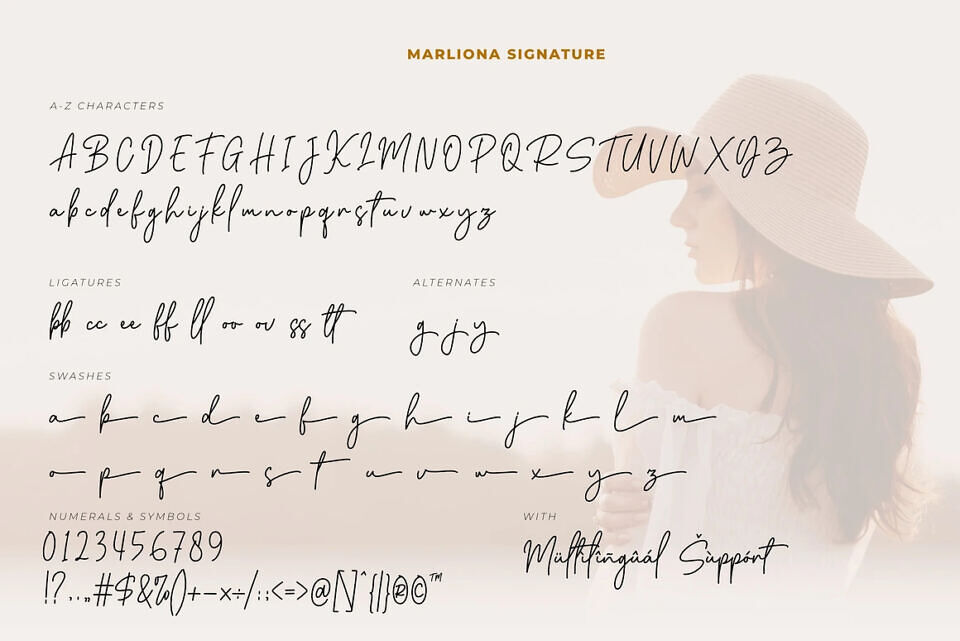 MARLIONA SIGNATURE
A-Z CHARACTERS
ABCDEFGHIJKLMNOPQRSTUVWXYZ
abcdefghijklmnopqrstuvwxyz
LIGATURES
bb cc ee ff ll oo ov ss tt
ALTERNATES
g j y
SWASHES
a b c d e f g h i j k l m
o p q r s t u v w x y z
NUMERALS & SYMBOLS
0123456789
!?..,„#$&%()+−×÷/:;<=>@[\]^{|}®©™
WITH
Mültîlîñgûál Šùppórt